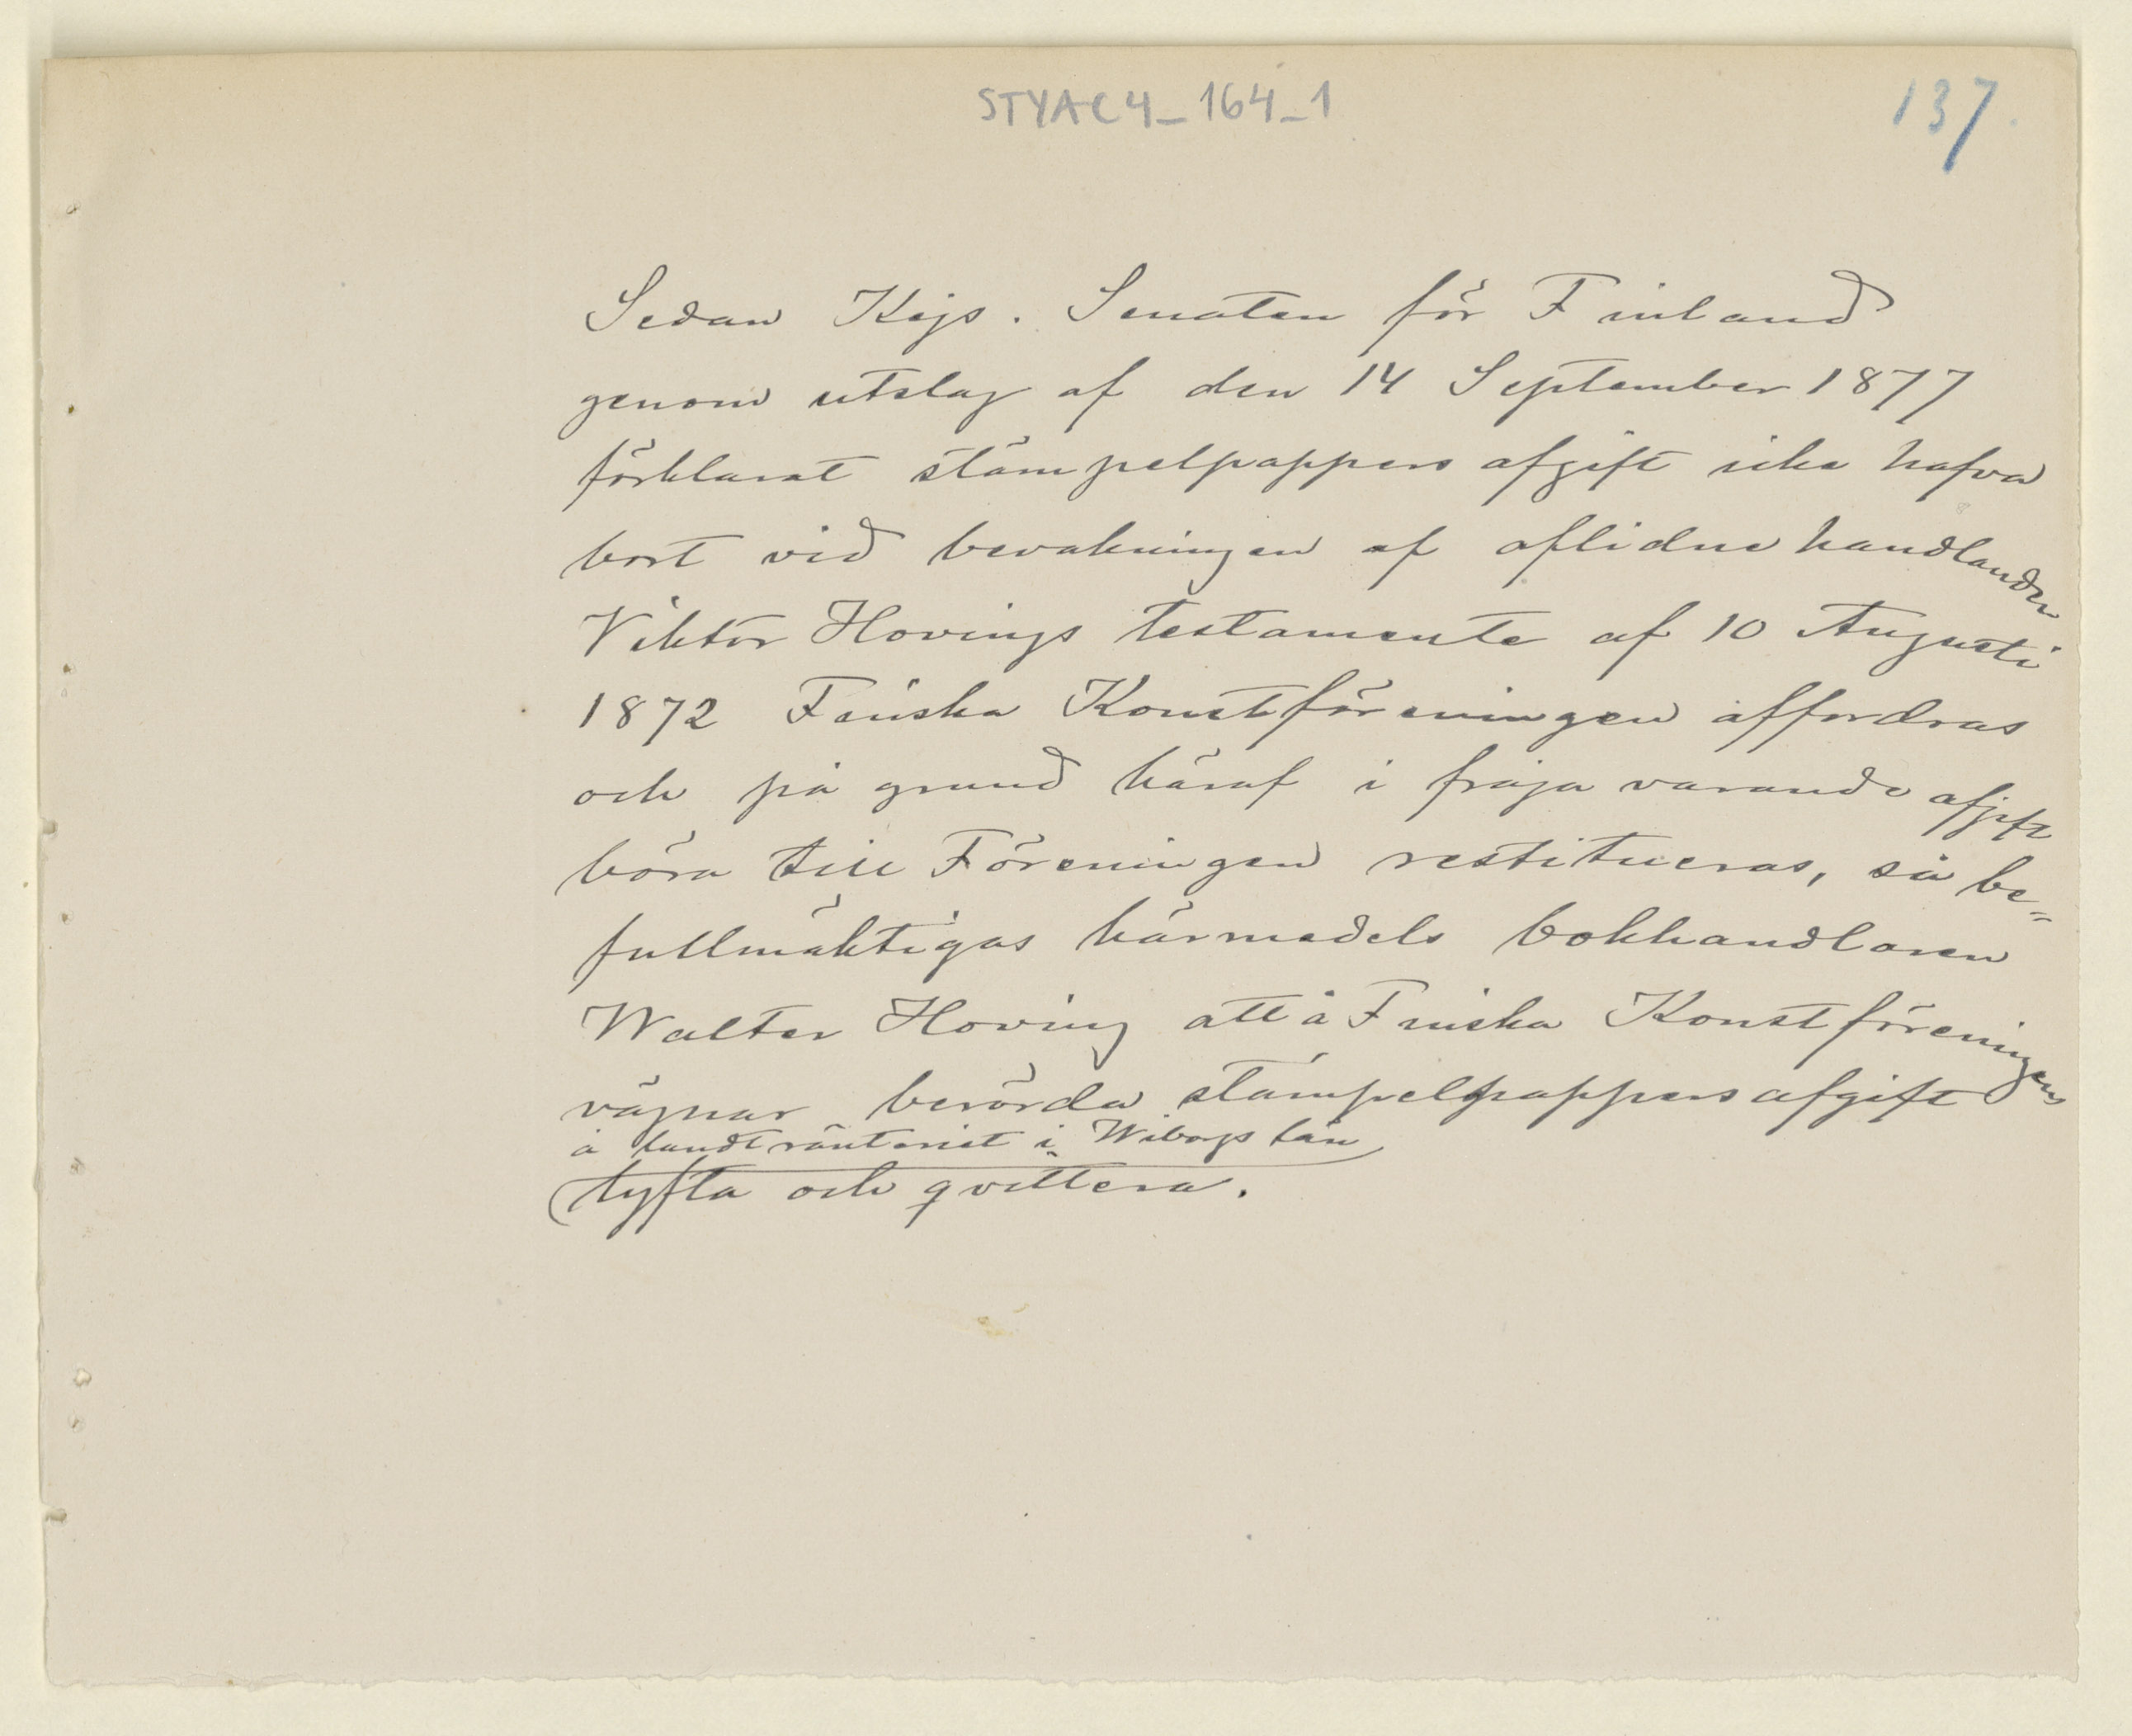 STYAC4_164_1
137.
Sedan Kejs. Senaten för Finland
genom utslag af den 14 September 1877
förklarat stämpelpappers afgift icke hafva
bort vid bevakningen af aflidne handlanden
Viktor Hovings testamente af 10 Augusti
1872 Finska Konstföreningen affordras
och på grund häraf i fråga varande afgift
böra till Föreningen restitueras, så be-
fullmäktigas härmedels bokhandlaren
Walter Hoving att å Finska Konstföreningens
vägnar berörda stämpelpappersafgift
å landtränteriet i Wiborgs län
lyfta och qvittera.